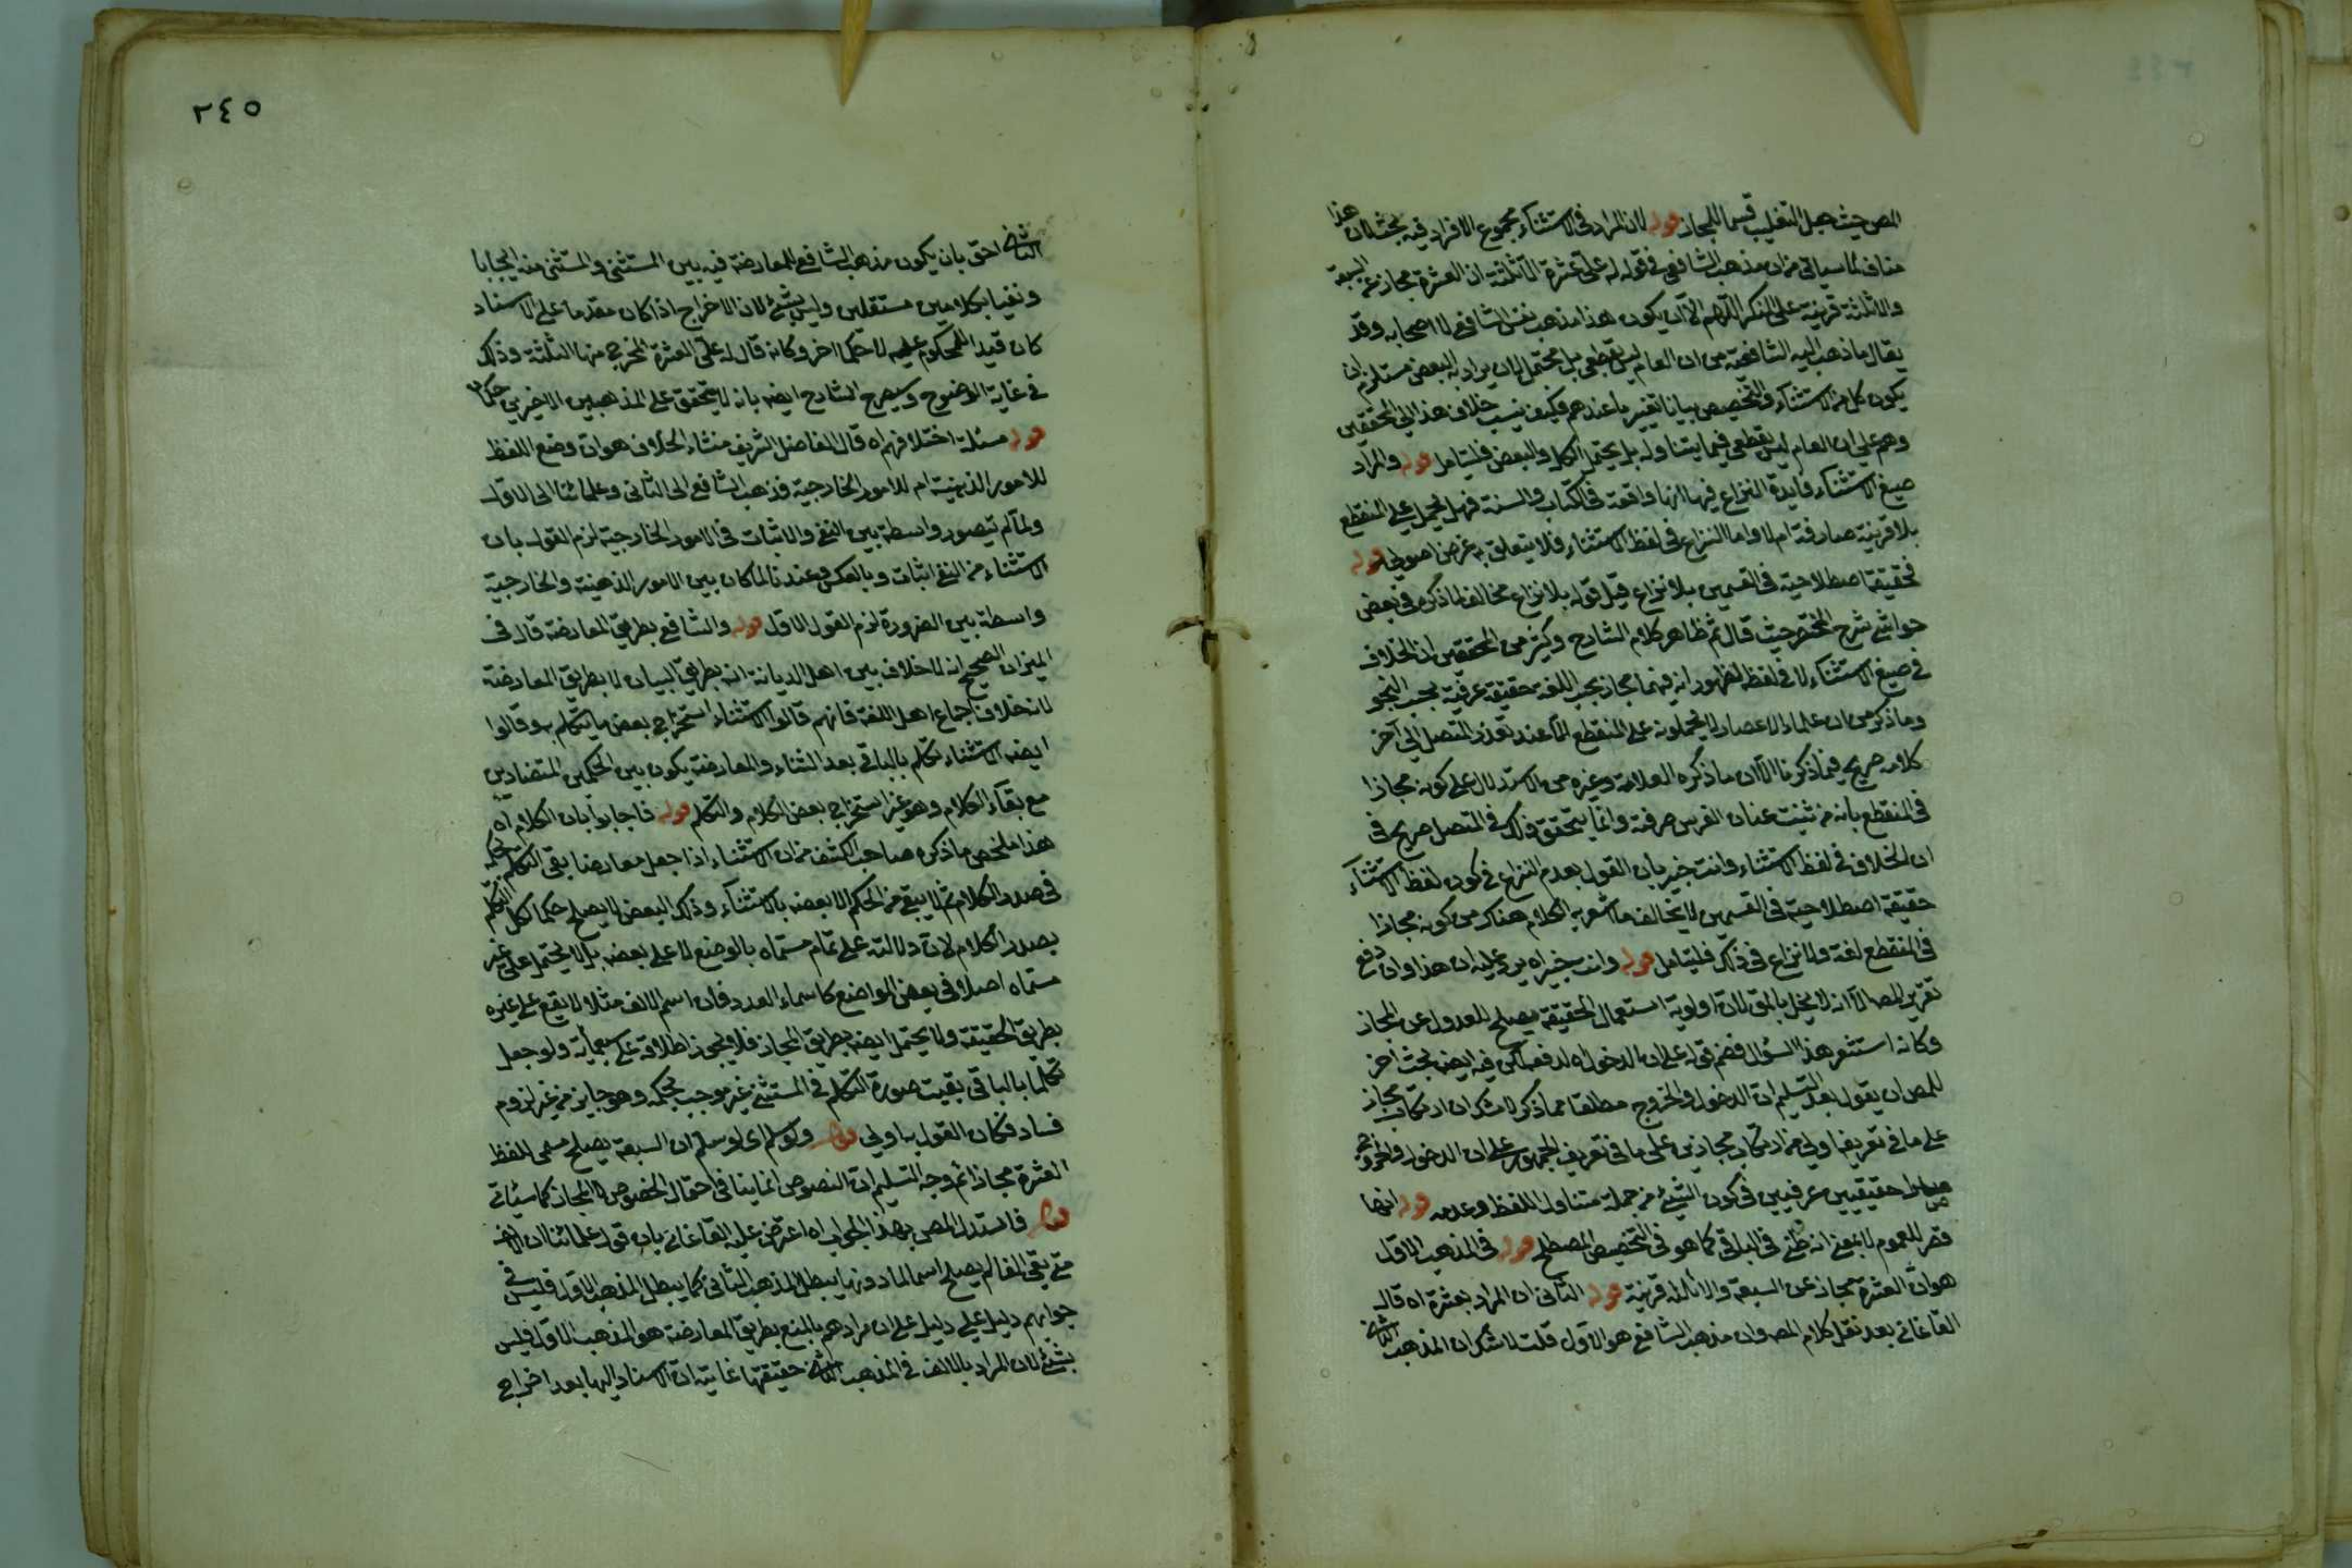 المص حيث جعل التغليب قسما للمجاز قوله لان المراد في الاستثناء مجموع الافراد فيه بحث لان هذا
مناف لما سياتي من ان مذهب الشافعي في قوله له على عشرة الا ثلثة ان العشرة مجاز عن السبعة
والا ثلثة قرينة على الذكر اللهم الا ان يكون هذا مذهب نفس الشافعي لا اصحابه وقد
يقال ما ذهب اليه الشافعية من ان العام ليس بقطعي بل محتمل لان يراد به البعض مستلزم ان
يكون كل من الاستثناء والتخصيص بيانا تغيير ما عندهم فكيف ينسب خلاف هذا الي المحققين
وهم على ان العام ليس بقطعي فيما يتناوله بل يحتمل الكل والبعض فليتامل قوله والمراد
صيغ الاستثناء فايدة النزاع فيها انها واقعة في الكتاب والسنة فهل يحمل على المنقطع
بلا قرينة صارفة ام لا واما النزاع في لفظ الاستثناء فلا يتعلق به غرض اصولي قوله
فحقيقة اصطلاحية في القسمين بلا نزاع قيل قوله بلا نزاع مخالف لما ذكره في بعض
حواشي شرح المختصر حيث قال ثم ظاهر كلام الشارح وكثير من المحققين ان الخلاف
في صيغ الاستثناء لا في لفظه لظهور انه فيهما مجاز بحسب اللغة حقيقة عرفية بحسب النحو
وما ذكر من ان علماء الاعصار لا يحملونه على المنقطع الا عند تعذر المتصل الي آخر
كلامه صريح فيما ذكرنا الا ان ما ذكره العلامة وغيره من الاستدلال على كونه مجازا
في المنقطع بانه من ثنيت عنان الفرس صرفته وانما يتحقق ذلك في المتصل صريح في
ان الخلاف في لفظ الاستثناء وانت خبير بان القول بعدم النزاع في كون لفظ الاستثناء
حقيقة اصطلاحية في القسمين لا يخالف ما اشعر به الكلام هناك من كونه مجازا
في المنقطع لغة ولا نزاع في ذلك فليتامل قوله وانت خبير اه يرد عليه ان هذا وان دفع
تقرير المص الا انه لا يخل بالمق لان اولوية استعمال الحقيقة يصلح للعدول عن المجاز
وكانه استشعر هذا السؤال فضم قوله على ان الدخول اه لدفعه لكن فيه ايضا بحث اخر
للمص ان يقول بعد التسليم ان الدخول والخروج مطلقا مما ذكر لا شك ان ارتكاب مجاز
على ما في تعريفنا اولى من ارتكاب مجازين على ما في تعريف الجمهور على ان الدخول والخروج
حقيقيين عرفيين في كون الشيء من جملة متناول اللفظ وعدمه قوله انها
قصر للعموم لا بمعنى انه ظني في الباقي كما هو في التخصيص المصطلح قوله في المذهب الاول
هو ان العشرة مجاز عن السبعة والا ثلثة قرينة قوله الثاني ان المراد بعشرة اه قال
القاغاني بعد نقل كلام المص وان مذهب الشافعي هو الاول قلت لا شك ان المذهب الثاني
٢٤٥
الثاني احق بان يكون مذهب الشافعي للمعارضة فيه بين المستثنى والمستثنى منه ايجابا
ونفيا بكلامين مستقلين وليس بشئ لان الاخراج اذا كان مقدما على الاسناد
كان قيدا للمحكوم عليه لا حكما اخر وكانه قال له على العشرة المخرج منها الثلثة وذلك
في غاية الوضوح وسيصرح الشارح ايضا بانه لا يتحقق على المذهبين الاخيرين حكمان
قوله مسئلة اختلافهم اه قال الفاضل الشريف منشاء الخلاف هو ان وضع اللفظ
للامور الذهنية ام للامور الخارجية فذهب الشافعي الى الثاني وعلمائنا الى الاول
ولما لم يتصور واسطة بين النفي والاثبات في الامور الخارجية لزم القول بان
الاستثناء من النفي اثبات وبالعكس وعندنا لما كان بين الامور الذهنية والخارجية
واسطة بين الضرورة لزم القول الاول قوله والشافعي بطريق المعارضة قال في
الميزان الصحيح انه لا خلاف بين اهل الديانة انه بطريق البيان لا بطريق المعارضة
لانه خلاف اجماع اهل اللغة فانهم قالوا الاستثناء استخراج بعض ما يتكلم به وقالوا
ايضا الاستثناء تكلم بالباقي بعد الثناء والمعارضة يكون بين الحكمين المتضادين
مع بقاء الكلام وهو غير استخراج بعض الكلام والتكلم قوله فاجابوا بان الكلام اه
هذا ملخص ما ذكره صاحب الكشف من ان الاستثناء اذا جعل معارضا بقي التكلم بحكمه
في صدر الكلام ثم لا يبقى من الحكم الا بعضه بالاستثناء وذلك البعض لا يصلح حكما لكل التكلم
بصدر الكلام لان دلالته على تمام مسماه بالوضع لا على بعضه بل لا يحتمل على غير
مسماه اصلا في بعض المواضع كاسماء العدد فان اسم الالف مثلا لا يقع على غيره
بطريق الحقيقة ولا يحتمل ايضا بطريق المجاز فلا يجوز اطلاقه على تسعماية ولو جعل
تكلما بالباقي بقيت صورة التكلم في المستثنى غير موجب لحكمه وهو جايز من غير لزوم
فساد فكان القول به اولي قوله ولو سلم اي لو سلم ان السبعة يصلح مسمى للفظ
العشرة مجازا ثم وجه التسليم ان النصوص انما ينافي احتمال الخصوص لا المجاز كما سيأتي
قوله فاستدل المص بهذا الجواب اه اعترض عليه القاغاني بان قول علمائنا ان الالف
متى بقي الفا لم يصلح اسما لما دونها يبطل المذهب الثاني كما يبطل المذهب الاول فليس في
جوابهم دليل على دليل على ان مرادهم بالمنع بطريق المعارضة هو المذهب الاول فليس
بشئ لان المراد بالالف في المذهب الثاني حقيقتها غايته ان الاسناد اليها بعد اخراج